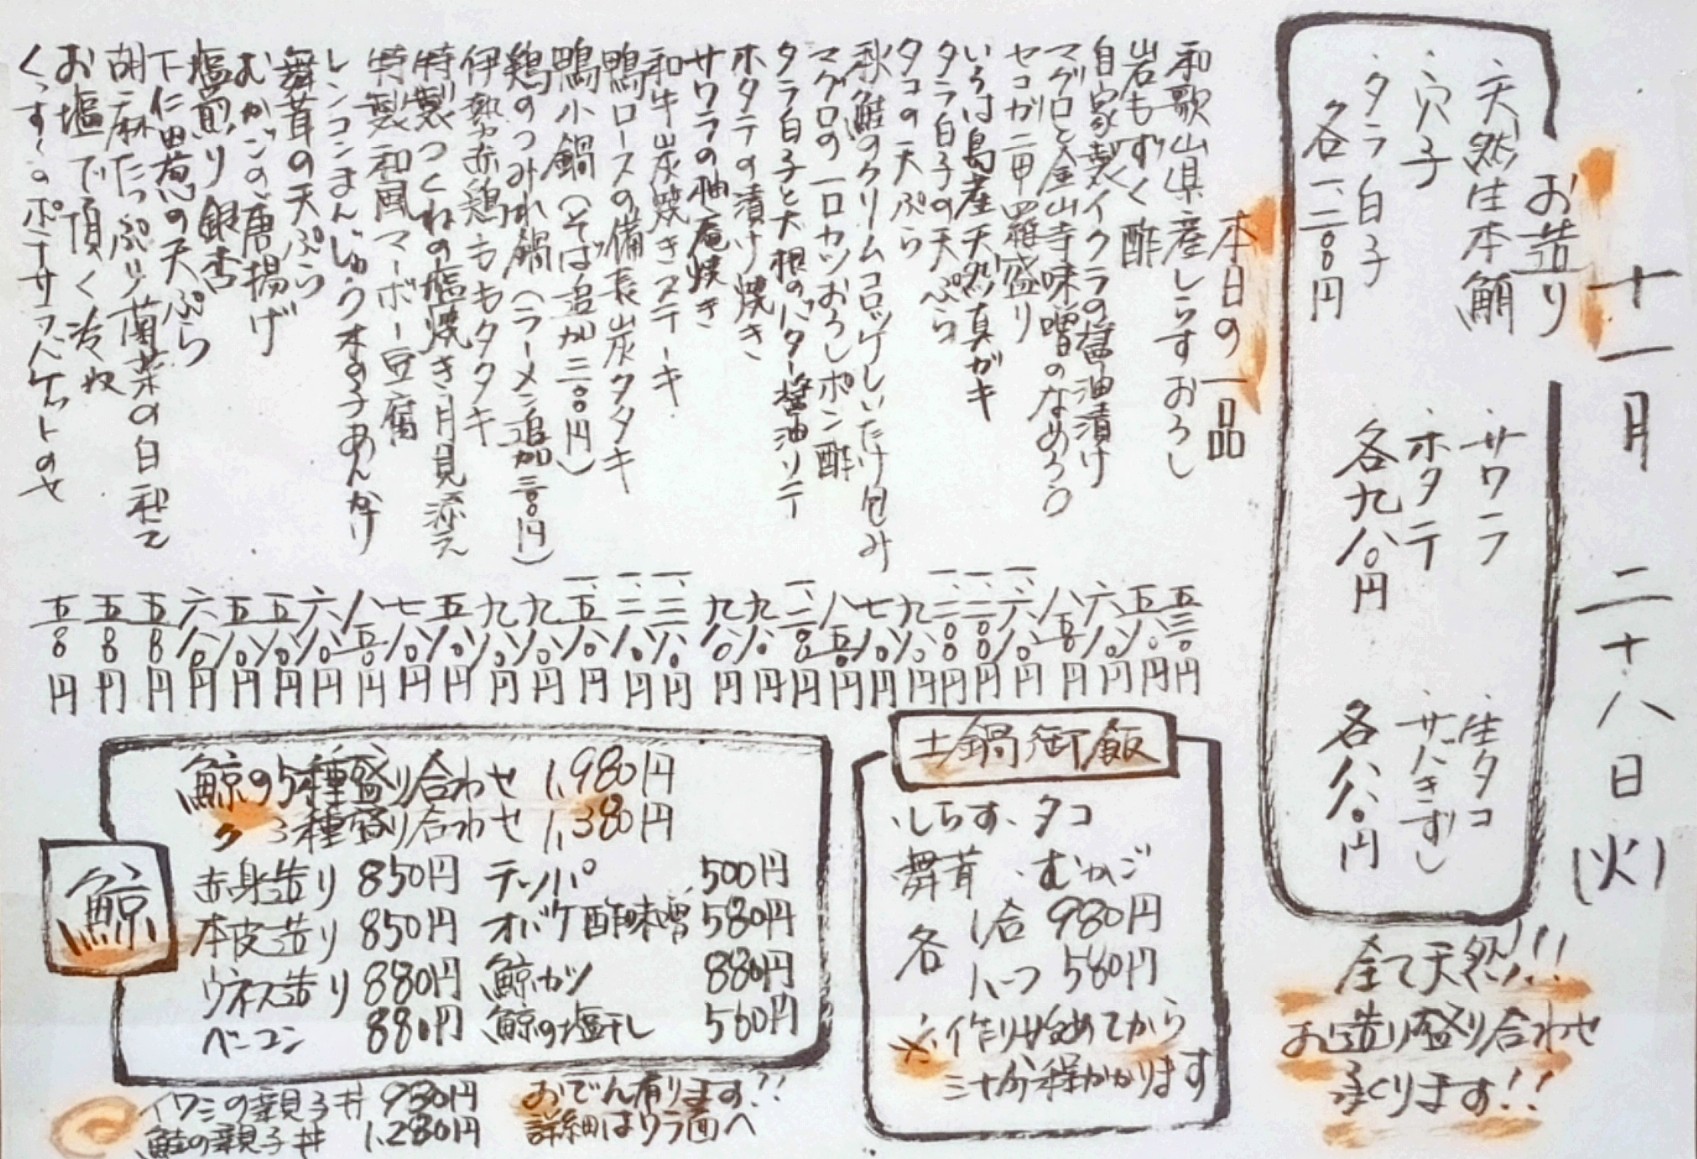 十一月 二十八日(火)
お造り
・天然生本鮪
・穴子
・タラ白子
各一、二〇〇円
・サワラ
・ホタテ
各九八〇円
・生タコ
・サバきずし
各八八〇円
全て天然!!!
お造り盛り合わせ
承くります!!
本日の一品
和歌山県産しらすおろし 五三〇円
岩もずく酢 五八〇円
自家製イクラの醤油漬け 六八〇円
マグロと金山寺味噌のなめろう 八五〇円
セコガニ甲羅盛り 一、六八〇円
いろは島産天然真ガキ
タラ白子の天ぷら
タコの天ぷら 九八〇円
秋鮭のクリームコロッケしいたけ包み 七八〇円
マグロの一口カツおろしポン酢 八五〇円
タラ白子と大根のバター醤油ソテー
ホタテの漬け焼き 九八〇円
サワラの柚庵焼き 九八〇円
和牛炭焼きステーキ
鴨ロースの備長炭タタキ
鴨小鍋(そば追加三〇〇円) 一、五八〇円
鶏のつみれ鍋(ラーメン追加三〇〇円) 九八〇円
伊勢赤鶏ももタタキ 九八〇円
特製つくねの塩焼き月見添え 五八〇円
特製和風マーボー豆腐 七八〇円
レンコンまんじゅう木の子あんかけ 八五〇円
舞茸の天ぷら 六八〇円
むかごの唐揚げ 五八〇円
塩煎り銀杏 五八〇円
下仁田葱の天ぷら 六八〇円
胡麻たっぷり菊菜の白和え 五五〇円
お塩で頂く冷奴 五五〇円
くっすくのポテサラバケットのせ 五五〇円
鯨
鯨の5種盛り合わせ 1,980円
〃 3種盛り合わせ 1,380円
赤身造り 850円
本皮造り 850円
ウネス造り 880円
ベーコン 880円
テッパ 500円
オバケ酢味噌 580円
鯨カツ 880円
鯨の塩干し 560円
土鍋御飯
・しらす・タコ
舞茸・むかご
各 1合 980円
ハーフ 580円
※作り始めてから
三十分程かかります
イワシの親子丼 980円
鮭の親子丼 1,280円
おでん有ります!!
詳細はウラ面へ